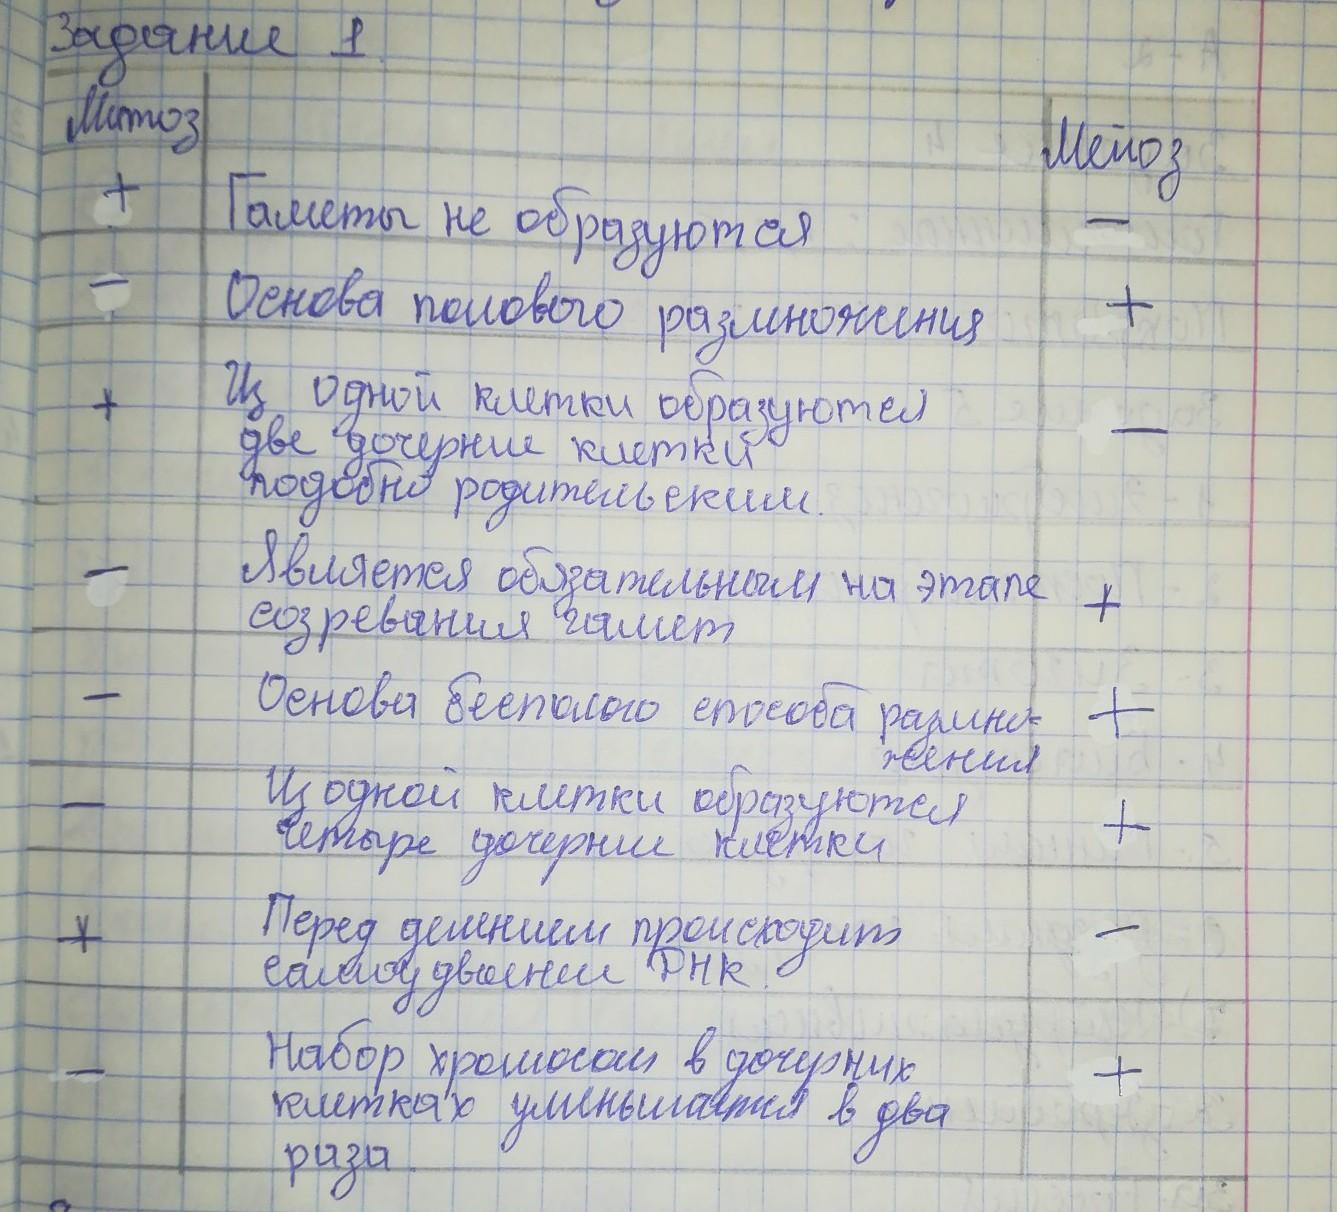 Задание 1.
Митоз Мейоз
+ Гаметы не образуются −
− Основа полового размножения +
+ Из одной клетки образуются −
две дочерние клетки
подобно родительским.
− Является обязательным на этапе +
созревания гамет
− Основа бесполого способа размно- +
жения
− Из одной клетки образуются +
четыре дочерние клетки
+ Перед делением происходит −
самоудвоение ДНК.
− Набор хромосом в дочерних +
клетках уменьшается в два
раза.